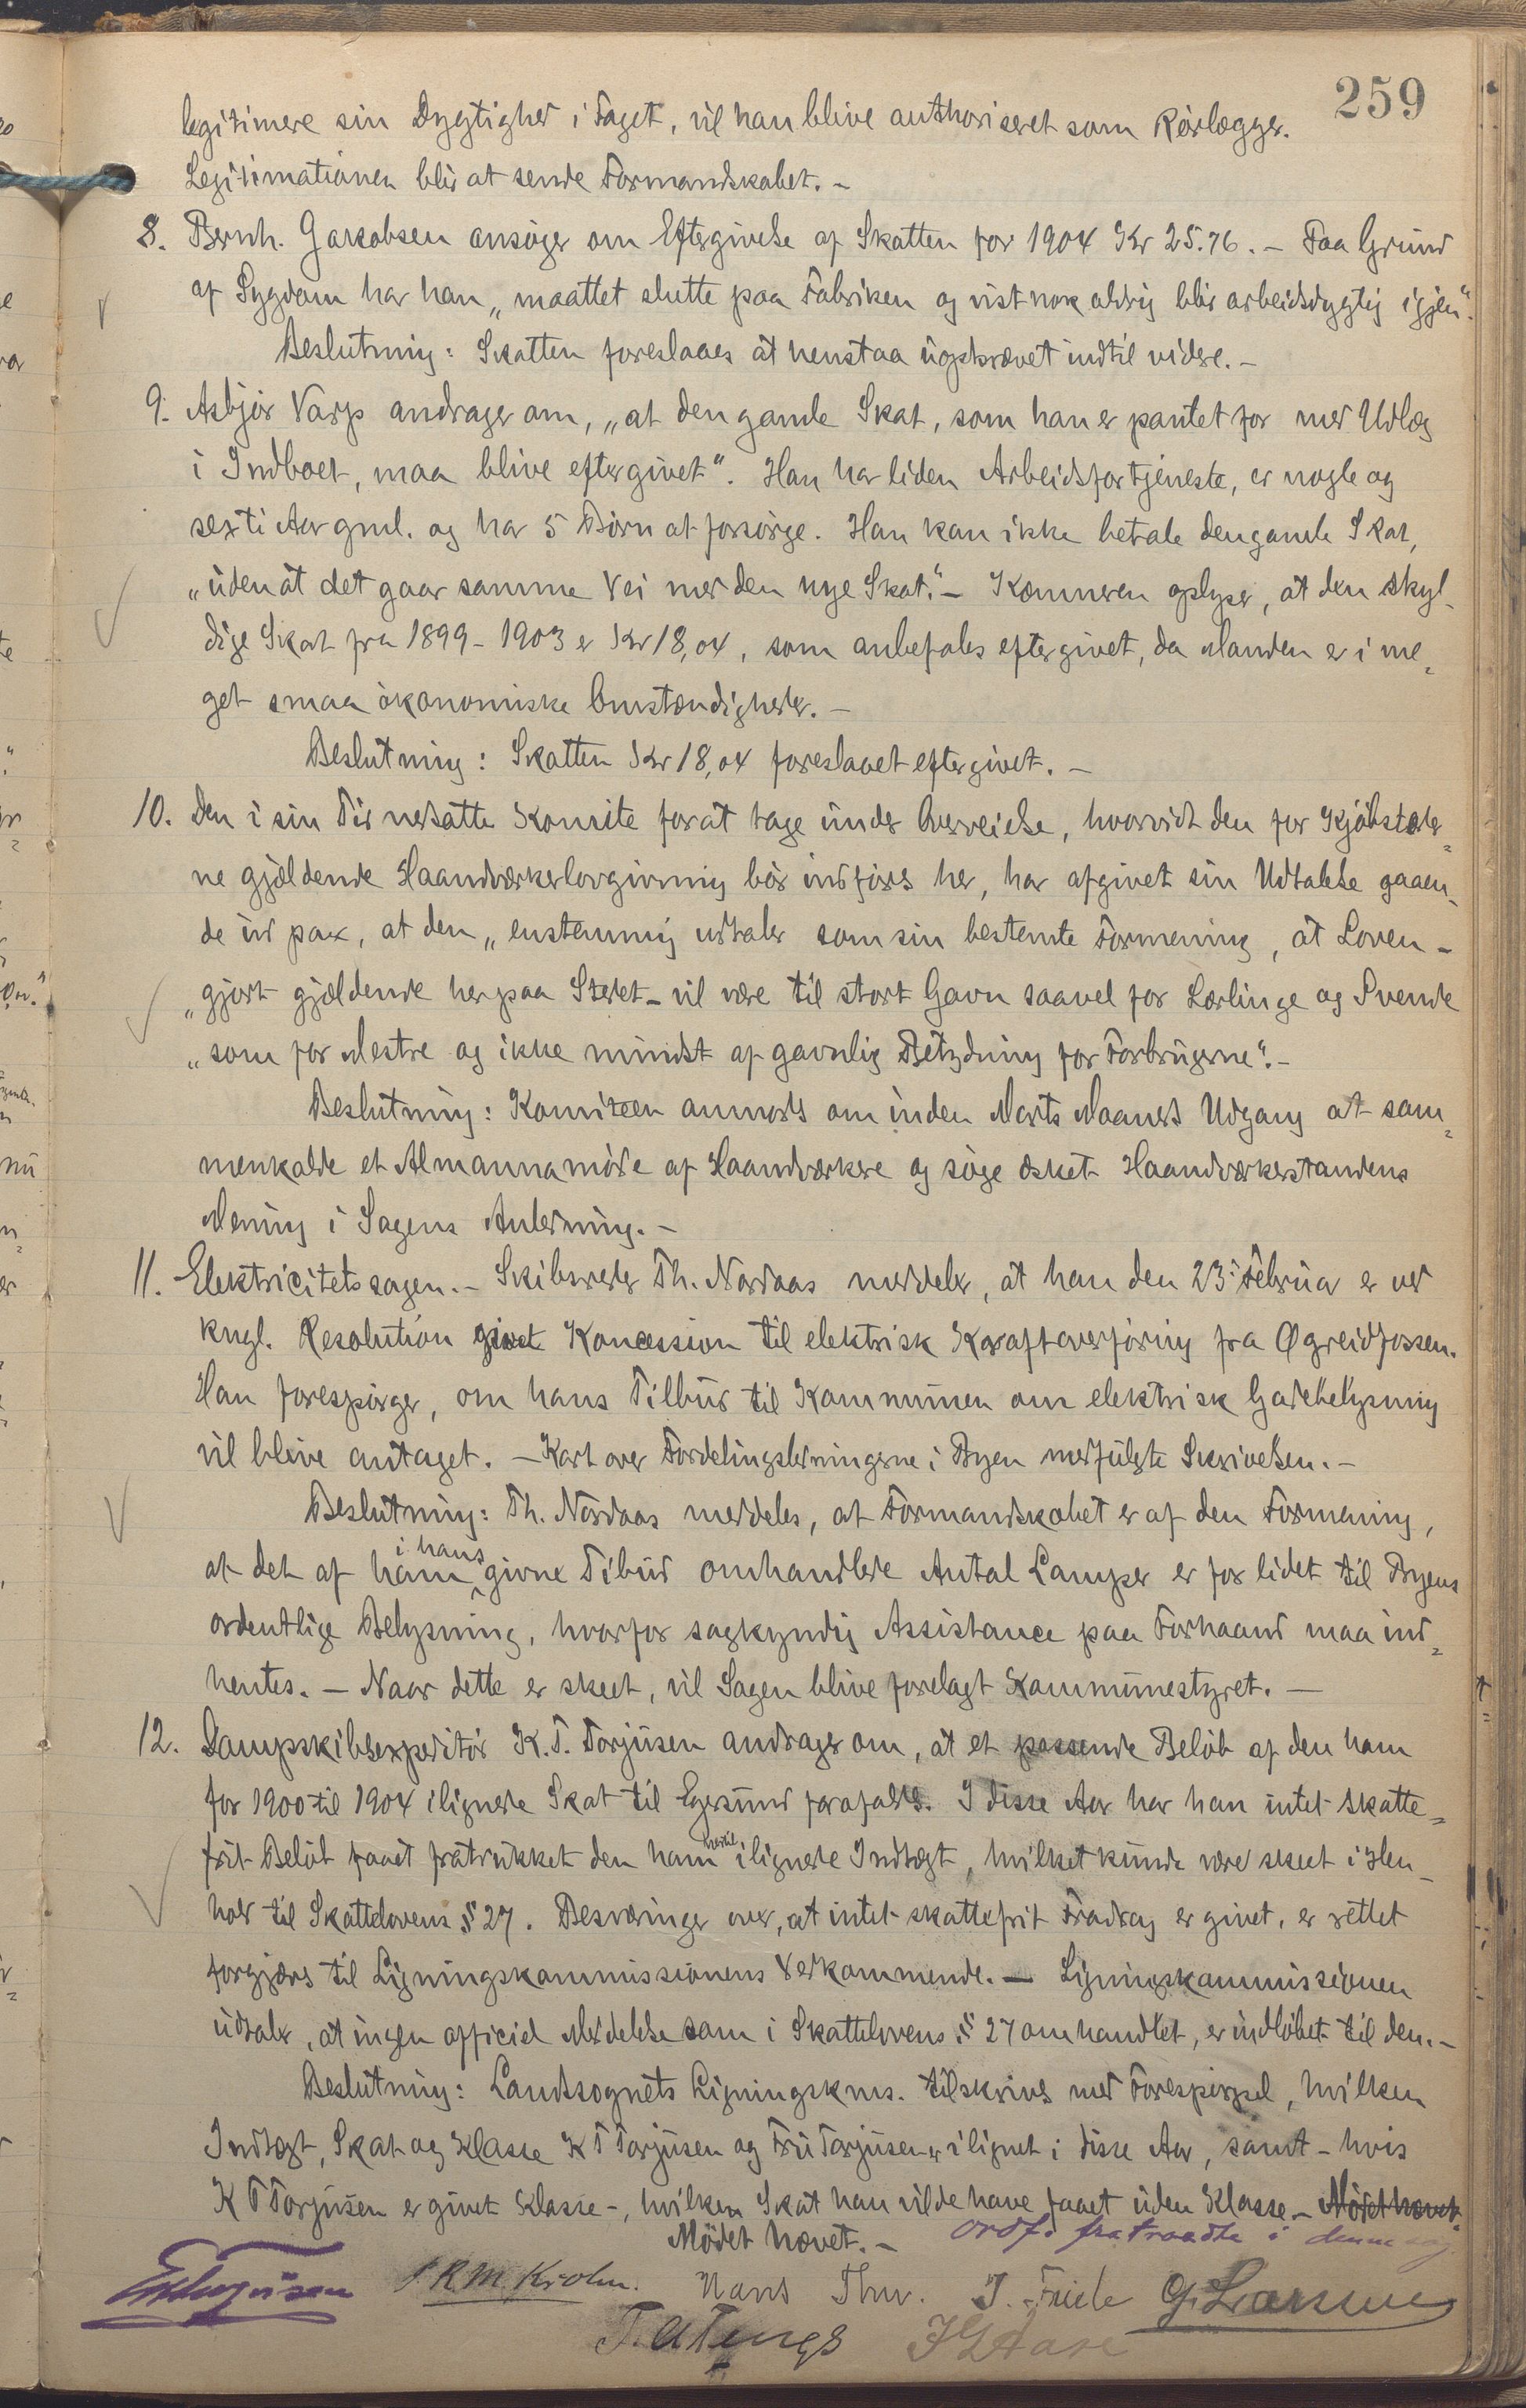 259
legitimere sin Dygtighed i Faget, vil han blive authoriseret som Rørlægger.
Legitimationen blir at sende Formandskabet. -
8. Bernh. Jakobsen ansøger om Eftergivelse af Skatten for 1904 Kr 25.76. - Paa Grund
af Sygdom har han "maattet slutte paa Fabriken og vistnok aldrig blir arbeidsdygtig igjen".
Beslutning: Skatten foreslaaes at henstaa uopkrævet indtil videre. -
9. Asbjør Varp andrager om, "at den gamle Skat, som han er pantet for med Udlæg
i Indboet, maa blive eftergivet". Han har liden Arbeidsfortjeneste, er nogle og
sexti Aar gml. og har 5 Børn at forsørge. Han kan ikke betale den gamle Skat,
"uden at det gaar samme Vei med den nye Skat." - Kæmneren oplyser, at den skyl-
dige Skat fra 1899-1903 er Kr 18,04, som anbefales eftergivet, da Manden er i me-
get smaa økonomiske Omstændigheder. -
Beslutning: Skatten Kr 18,04 foreslaaet eftergivet. -
10. Den i sin Tid nedsatte Komite for at tage under Overveielse, hvorvidt den for Kjøbstæder-
ne gjældende Haandværkerlovgivning bør indføres her, har afgivet sin Udtalelse gaaen-
de ud paa, at den "enstemmig udtaler som sin bestemte Formening, at Loven -
"gjort gjældende her paa Stedet - vil være til stort Gavn saavel for Lærlinge og Svende
"som for Mestre og ikke mindst af gavnlig Betydning for Forbrugerne". -
Beslutning: Komiteen anmodes om inden Marts Maaneds Udgang at sam-
menkalde et Almannamøde af Haandværkere og søge æsket Haandværkerstandens
Mening i Sagens Anledning. -
11. Elektricitetssagen. - Skibsreder Th. Nordaas meddeler, at han den 23: Februar er ved
kngl. Resolution givet Koncession til elektrisk Kraftoverføring fra Øgreidfossen.
Han forespørger, om hans Tilbud til Kommunen om elektrisk Gadebelysning
vil blive antaget. - Kart over Fordelingsledningerne i Byen medfulgte Skrivelsen. -
Beslutning: Th. Nordaas meddeles, at Formandskabet er af den Formening,
at det af ham i hans givne Tilbud omhandlede Antal Lamper er for lidet til Byens
ordentlige Belysning, hvorfor sagkyndig Assistance paa Forhaand maa ind-
hentes. - Naar dette er skeet, vil Sagen blive forelagt Kommunestyret. -
12. Dampskibsexpeditør K. T. Torjusen andrager om, at et passende Beløb af den ham
for 1900 til 1904 ilignede Skat til Egersund frafaldes. I disse Aar har han intet skatte-
frit Beløb faaet fratrukket den ham ilignede Indtægt, hvilket kunde være skeet i Hen-
hold til Skattelovens § 27. Besværinger over, at intet skattefrit Fradrag er givet, er rettet
forgjæves til Ligningskommissionens Vedkommende. - Ligningskommissionen
udtaler, at ingen officiel Meddelelse som i Skattelovens § 27 omhandlet, er indløbet til den. -
Beslutning: Landsognets Ligningskms. tilskrives med Forespørgsel, hvilken
Indtægt, Skat og Klasse K T Torjusen og Fru Torjusen er ilignet i disse Aar, samt - hvis
K T Torjusen er givet Klasse -, hvilken Skat han vilde have faaet uden Klasse. - Mødet hævet.
Mødet hævet. - Ordf. fratraadte i denne sag
P R M. Krohn. Hans Thu. J. Feide G. Larsen
T. A Tengs J G Aase